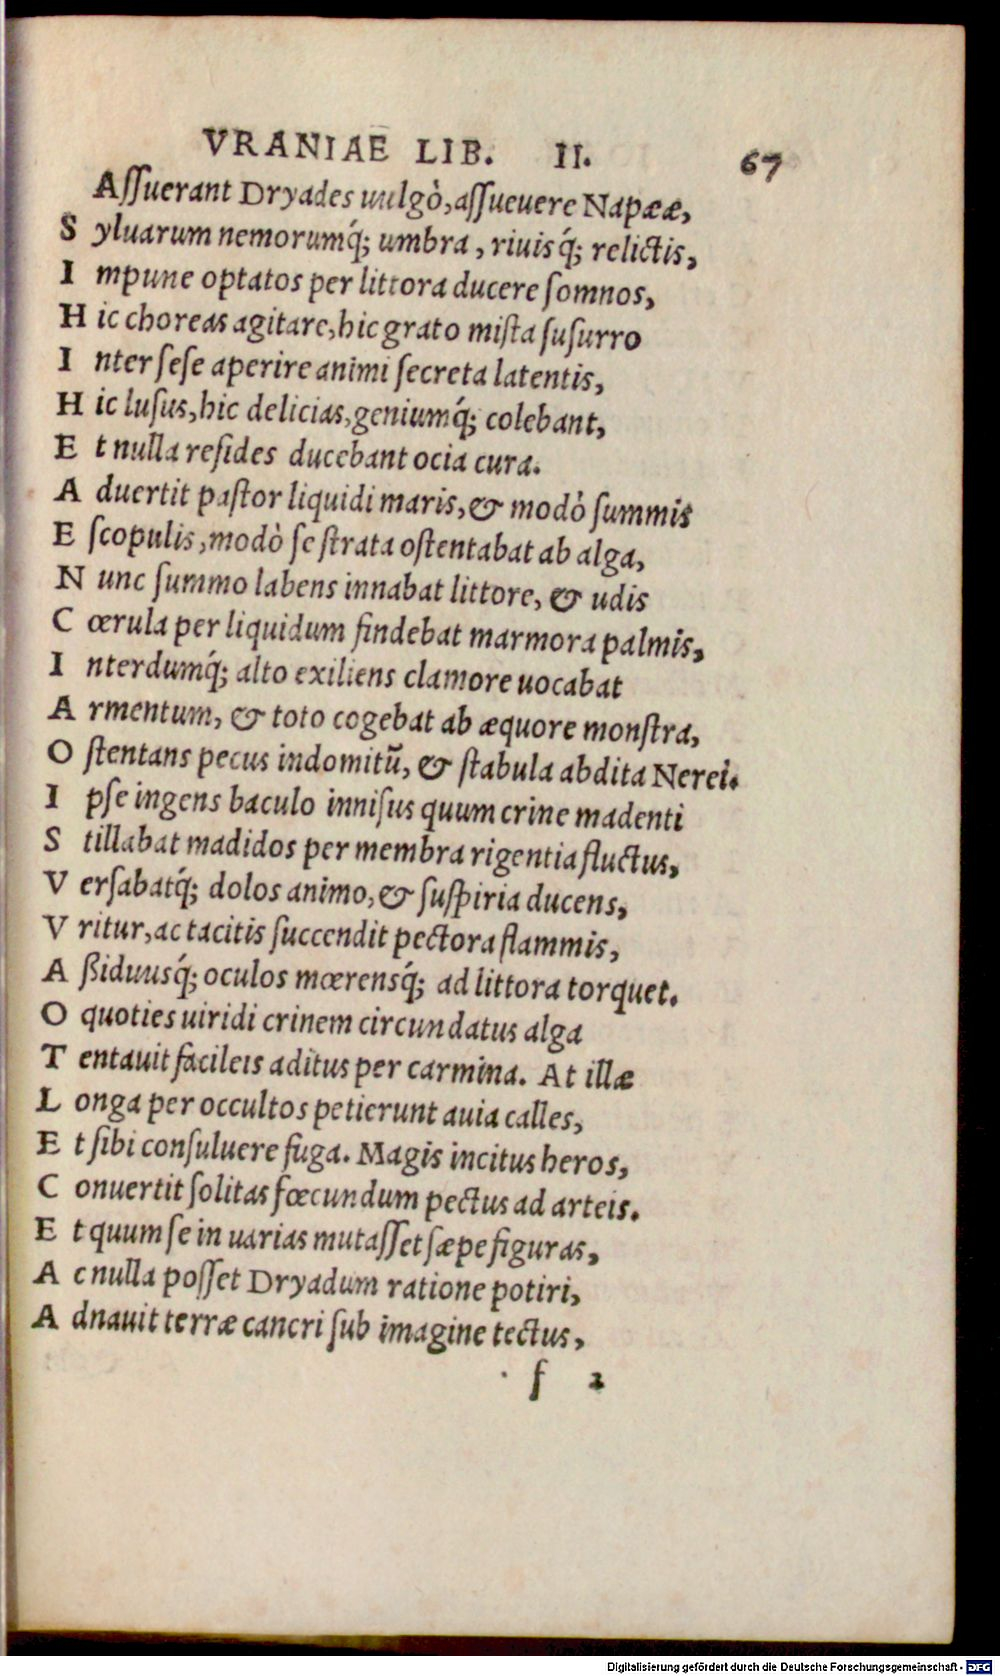 VRANIAE LIB. II. 67
Aſſuerant Dryades uulgò, aſſueuere Napææ,
S yluarum nemorumq́; umbra, riuisq́; relictis,
I mpune optatos per littora ducere ſomnos,
H ic choreas agitare, hic grato miſta ſuſurro
I nter ſeſe aperire animi ſecreta latentis,
H ic luſus, hic delicias, geniumq́; colebant,
E t nulla reſides ducebant ocia cura.
A duertit paſtor liquidi maris, & modò ſummis
E ſcopulis, modò ſe ſtrata oſtentabat ab alga,
N unc ſummo labens innabat littore, & udis
C œrula per liquidum findebat marmora palmis,
I nterdumq́; alto exiliens clamore uocabat
A rmentum, & toto cogebat ab æquore monſtra,
O ſtentans pecus indomitū, & ſtabula abdita Nerei.
I pſe ingens baculo inniſus quum crine madenti
S tillabat madidos per membra rigentia fluctus,
V erſabatq́; dolos animo, & ſuſpiria ducens,
V ritur, ac tacitis ſuccendit pectora flammis,
A ßiduusq́; oculos mœrensq́; ad littora torquet.
O quoties uiridi crinem circundatus alga
T entauit facileis aditus per carmina. At illæ
L onga per occultos petierunt auia calles,
E t ſibi conſuluere fuga. Magis incitus heros,
C onuertit ſolitas fœcundum pectus ad arteis.
E t quum ſe in uarias mutaſſet ſæpe figuras,
A c nulla poſſet Dryadum ratione potiri,
A dnauit terræ cancri ſub imagine tectus,
f 2
Digitalisierung gefördert durch die Deutsche Forschungsgemeinschaft - DFG